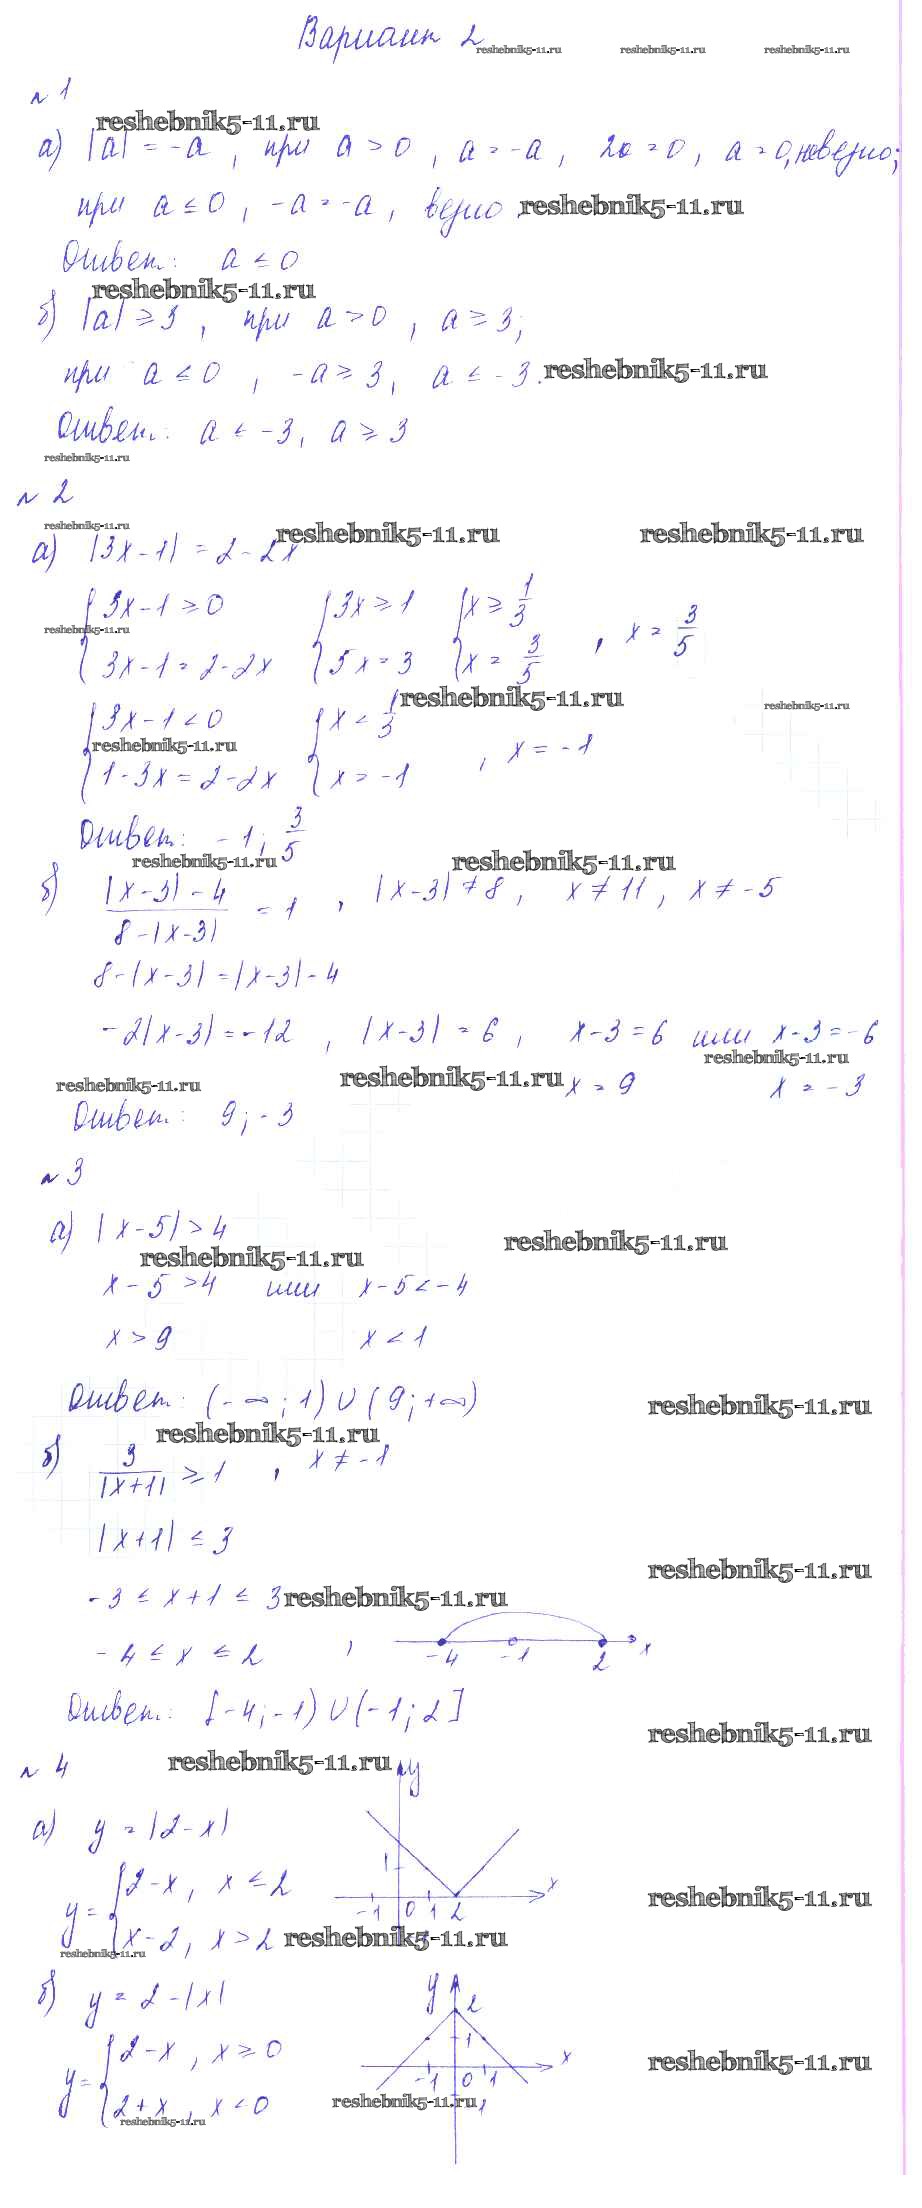 Вариант 2
reshebnik5-11.ru reshebnik5-11.ru reshebnik5-11.ru
№ 1
reshebnik5-11.ru
а) |a| = -a, при a > 0, a = -a, 2a = 0, a = 0, неверно;
при a ≤ 0, -a = -a, верно reshebnik5-11.ru
Ответ: a ≤ 0
reshebnik5-11.ru
б) |a| ≥ 3, при a > 0, a ≥ 3;
при a ≤ 0, -a ≥ 3, a ≤ -3. reshebnik5-11.ru
Ответ: a ≤ -3, a ≥ 3
reshebnik5-11.ru
№ 2
reshebnik5-11.ru reshebnik5-11.ru reshebnik5-11.ru
а) |3x-1| = 2-2x
{3x-1 ≥ 0 {3x ≥ 1 {x ≥ 1/3
reshebnik5-11.ru
{3x-1 = 2-2x {5x = 3 {x = 3/5, x = 3/5
reshebnik5-11.ru reshebnik5-11.ru
{3x-1 < 0 {x < 1/3
reshebnik5-11.ru
{1-3x = 2-2x {x = -1, x = -1
Ответ: -1; 3/5
reshebnik5-11.ru reshebnik5-11.ru
б) (|x-3|-4)/(8-|x-3|) = 1, |x-3| ≠ 8, x ≠ 11, x ≠ -5
8-|x-3| = |x-3|-4
-2|x-3| = -12, |x-3| = 6, x-3 = 6 или x-3 = -6
reshebnik5-11.ru reshebnik5-11.ru reshebnik5-11.ru
x = 9 x = -3
Ответ: 9; -3
№ 3
а) |x-5| > 4
reshebnik5-11.ru reshebnik5-11.ru
x-5 > 4 или x-5 < -4
x > 9 x < 1
Ответ: (-∞; 1) ∪ (9; +∞) reshebnik5-11.ru
reshebnik5-11.ru
б) 3/|x+1| ≥ 1, x ≠ -1
|x+1| ≤ 3
reshebnik5-11.ru
-3 ≤ x+1 ≤ 3 reshebnik5-11.ru
-4 ≤ x ≤ 2, -4 -1 2 x
Ответ: [-4; -1) ∪ (-1; 2]
reshebnik5-11.ru
№ 4 reshebnik5-11.ru y
а) y = |2-x|
y = {2-x, x ≤ 2
1 x
reshebnik5-11.ru
-1 0 1 2
{x-2, x > 2 reshebnik5-11.ru
reshebnik5-11.ru
б) y = 2-|x| y 2
y = {2-x, x ≥ 0 1 x
reshebnik5-11.ru
-1 0 1
{2+x, x < 0 reshebnik5-11.ru
reshebnik5-11.ru